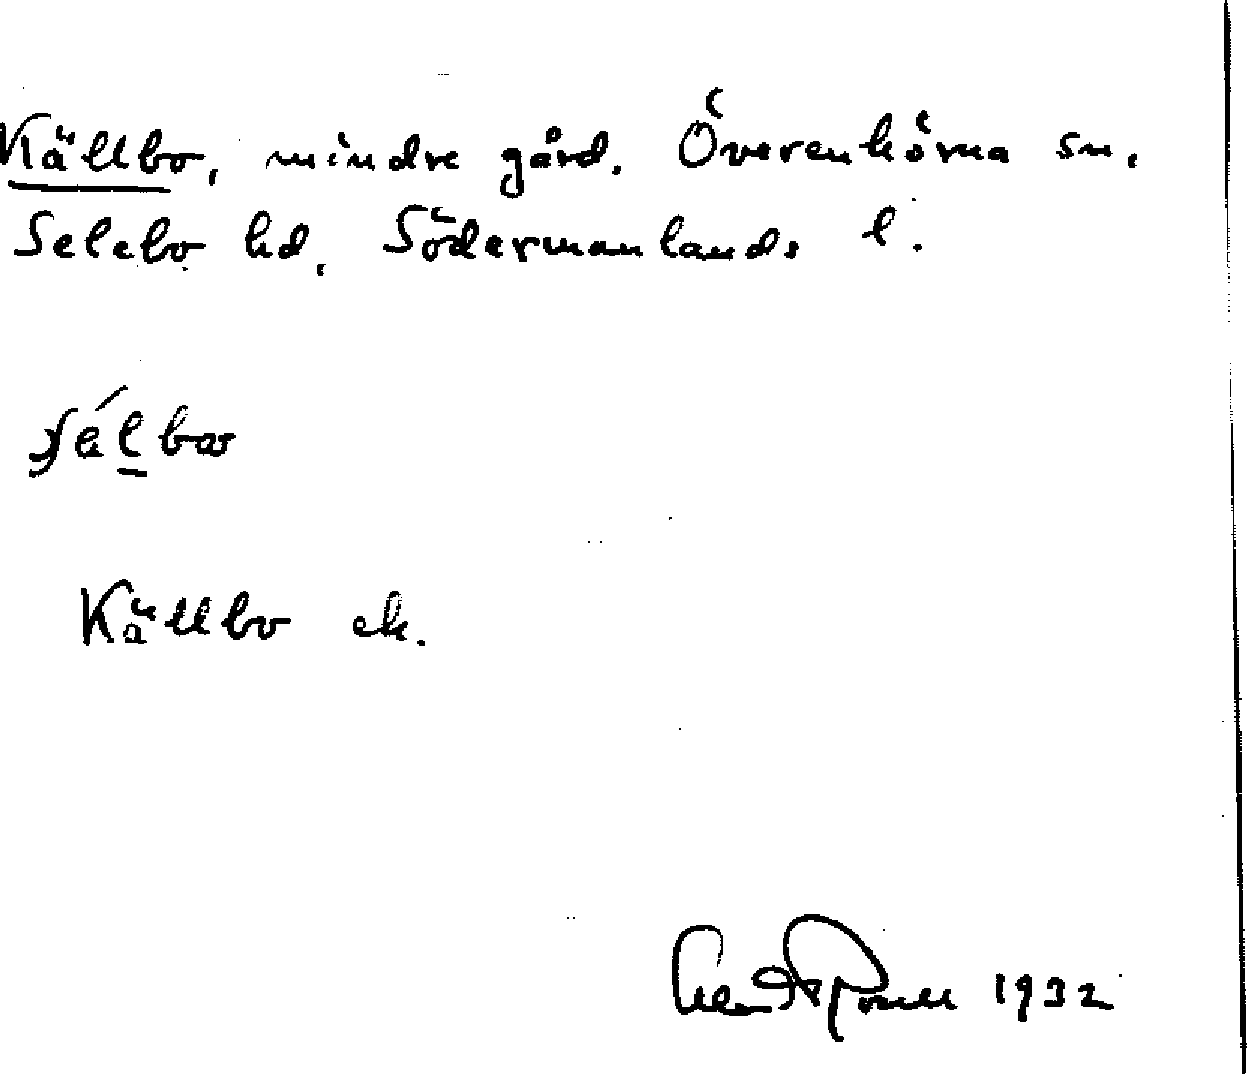 Källbo, mindre gård. Överenhörna sn.
Selebo hd, Södermanlands l.
Källbo ek.
1932